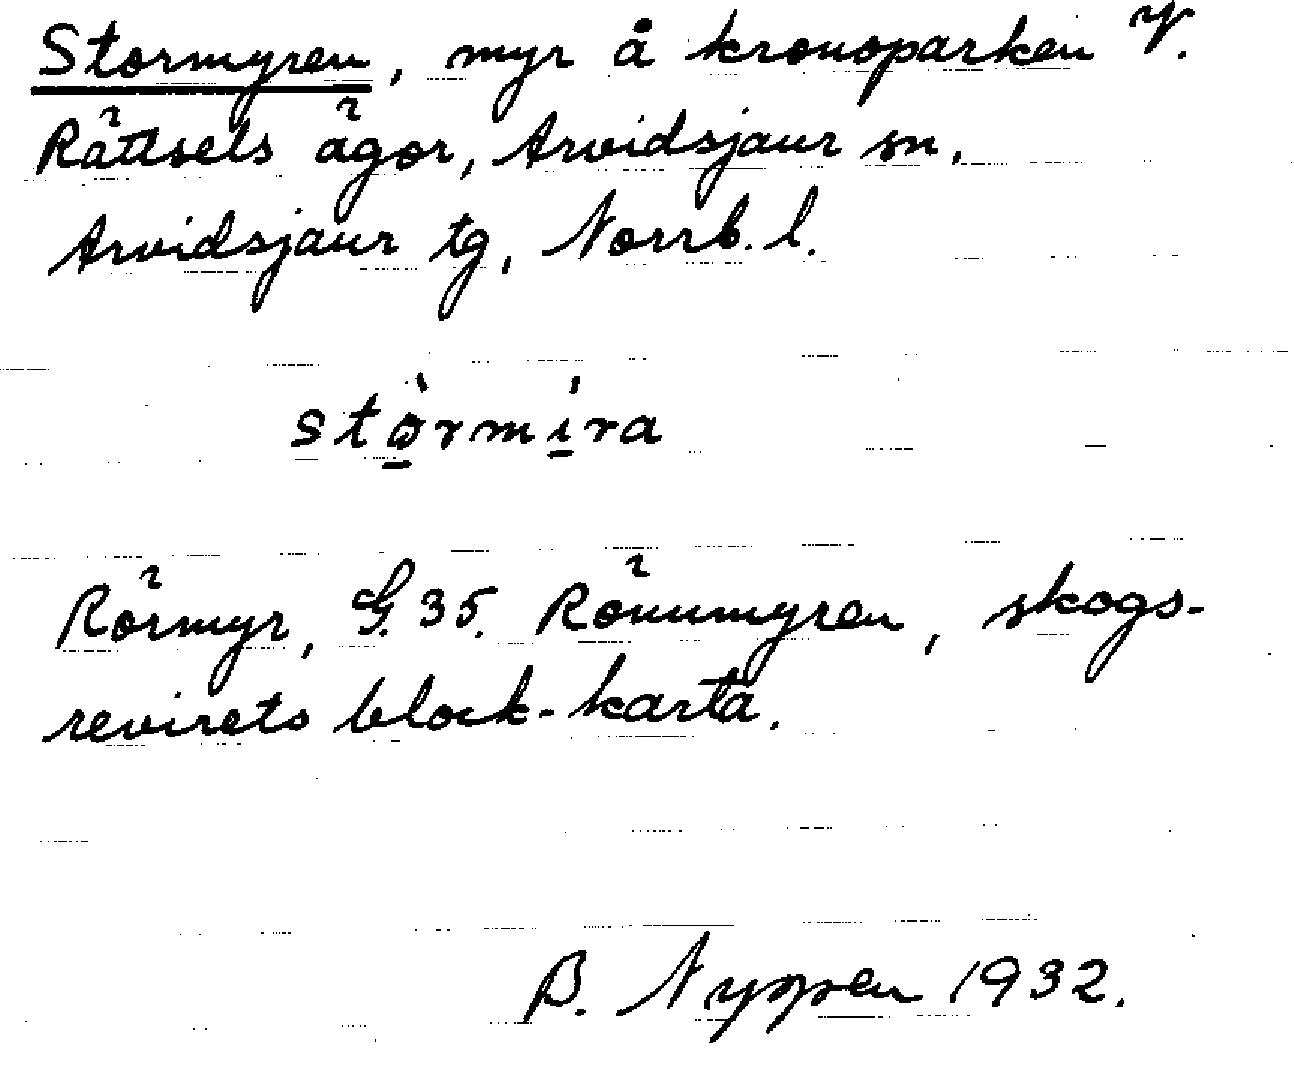 Stormyren, myr å kronoparken V.
Rättsels ägor, Arvidsjaur sn,
Arvidsjaur tg, Norrb. l.
stòrmíra
Rörmyr, G. 35. Rönnmyren, skogs-
revirets block-karta.
B. Nyppen 1932.